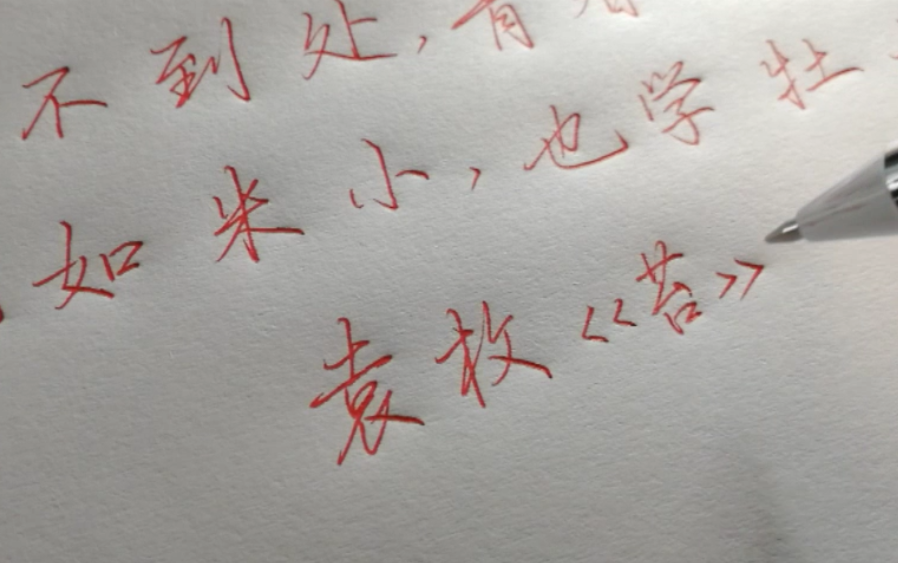 不到处,青春
如米小,也学牡
袁枚《苔》